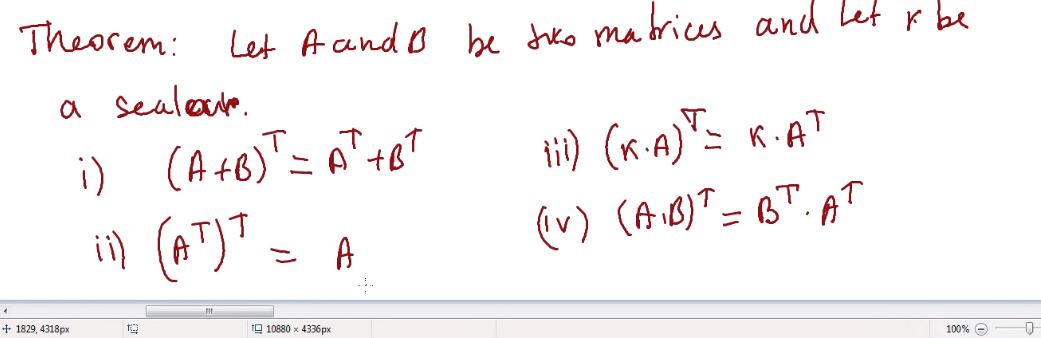 Theorem: Let A and B be two matrices and let k be
a scalar.
i) (A+B)^T = A^T + B^T
ii) (A^T)^T = A
iii) (k·A)^T = k·A^T
(iv) (A·B)^T = B^T · A^T
1829, 4318px
10880 × 4336px
100%